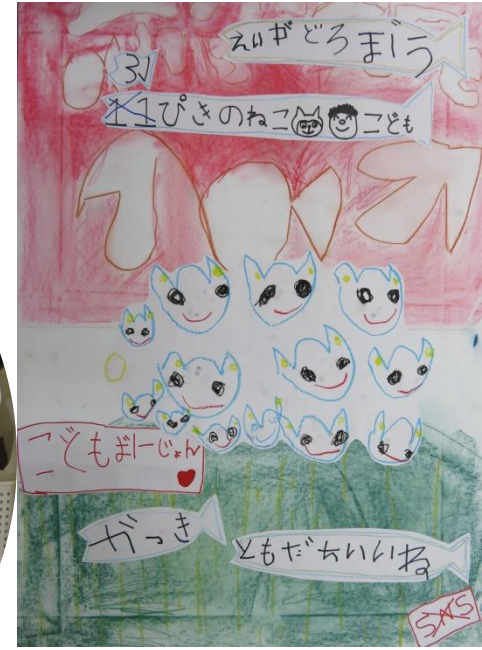 えいがどろぼう
31
11ぴきのねこ こども
こどもばーじょん
がっき
ともだちいいね
SNS